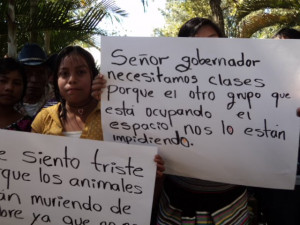 Señor gobernador
necesitamos clases
porque el otro grupo que
está ocupando el
espacio nos lo están
impidiendo.
e siento triste
rque los animales
n muriendo de
bre ya que no